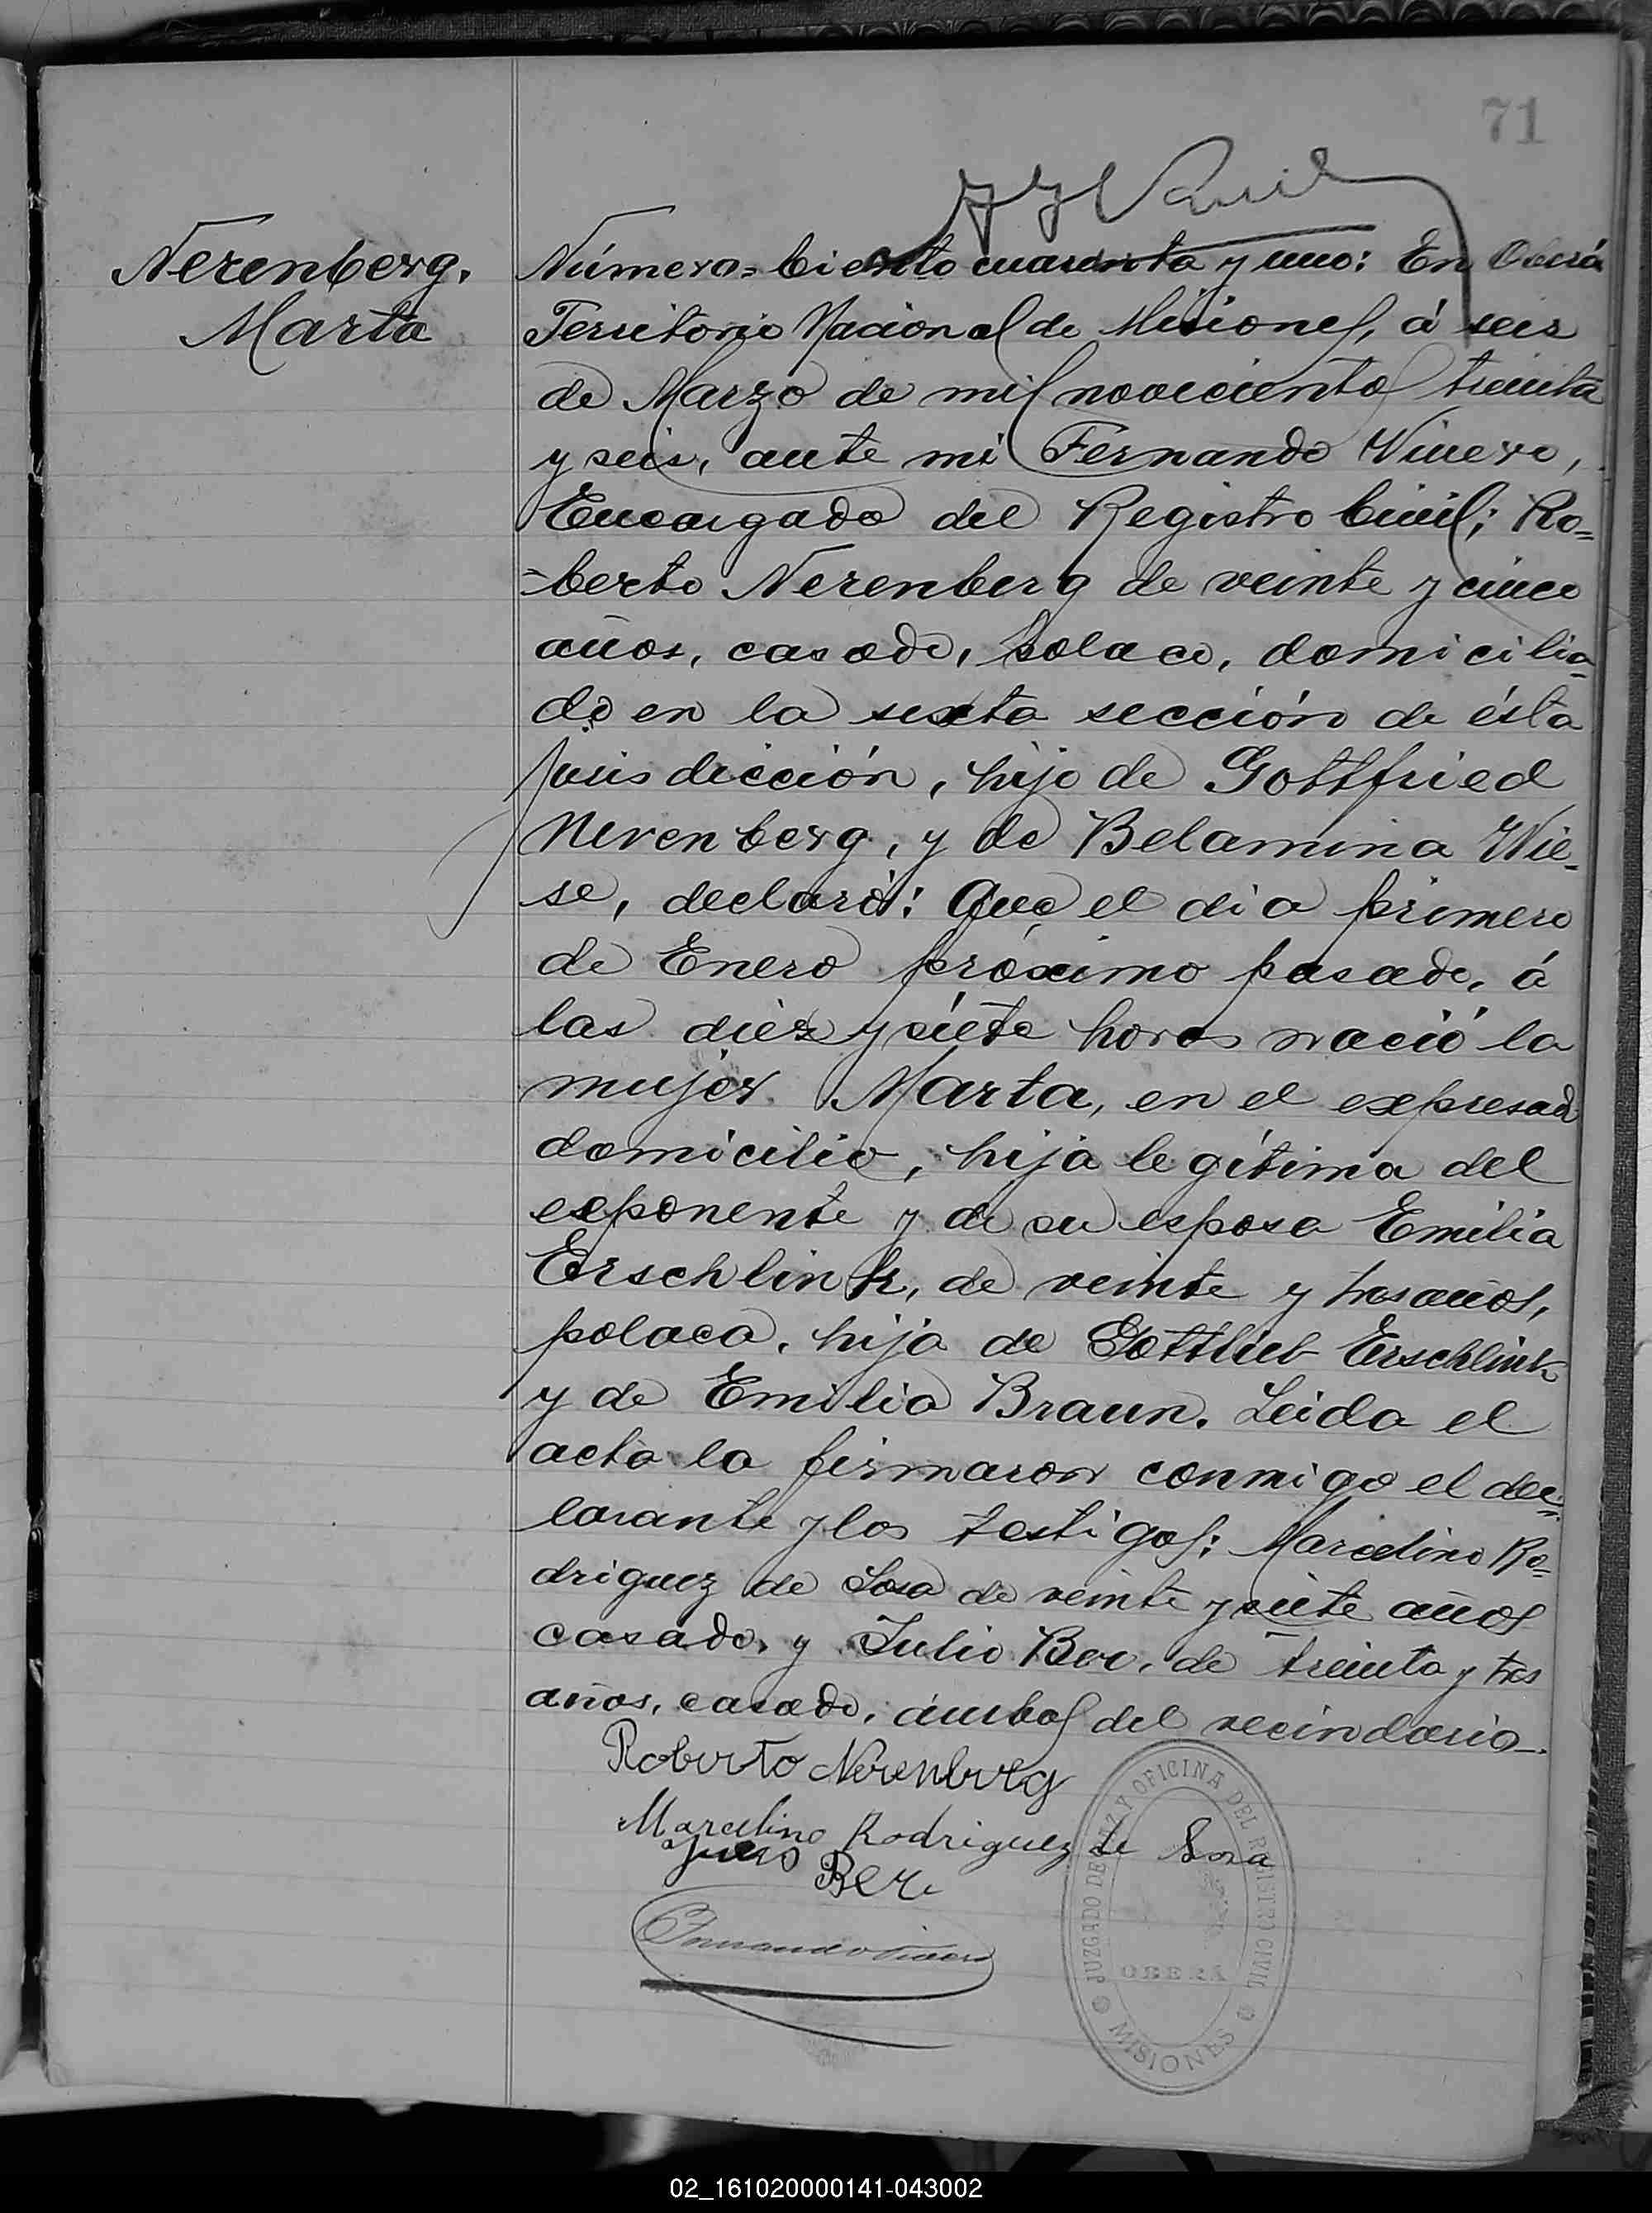 71
Nerenberg,
Marta
Número= Ciento cuarenta y uno: En Oberá
Territorio Nacional de Misiones, á seis
de Marzo de mil novecientos treinta
y seis, ante mi Fernando Vivero,
Encargado del Registro Civil; Ro=
=berto Nerenberg de veinte y cinco
años, casado, polaco, domicilia=
do en la sexta sección de ésta
jurisdicción, hijo de Gottfried
Nerenberg, y de Belamina Wie=
se, declaró: Que el dia primero
de Enero próximo pasado, á
las diez y siete horas nació la
mujer Marta, en el expresado
domicilio, hija legítima del
exponente y de su esposa Emilia
Erschlink, de veinte y tres años,
polaca, hija de Gottlieb Erschlink
y de Emilia Braun. Leida el
acta la firmaron conmigo el dec=
larante y los testigos: Marcelino Ro=
driguez de Sosa de veinte y siete años
casado, y Julio Ber, de treinta y tres
años, casado, ámbos del vecindario.
Roberto Nerenberg
Marcelino Rodriguez de Sosa
Julio Ber
JUZGADO DE PAZ Y OFICINA DEL REGISTRO CIVIL
OBERÁ
MISIONES
02_161020000141-043002